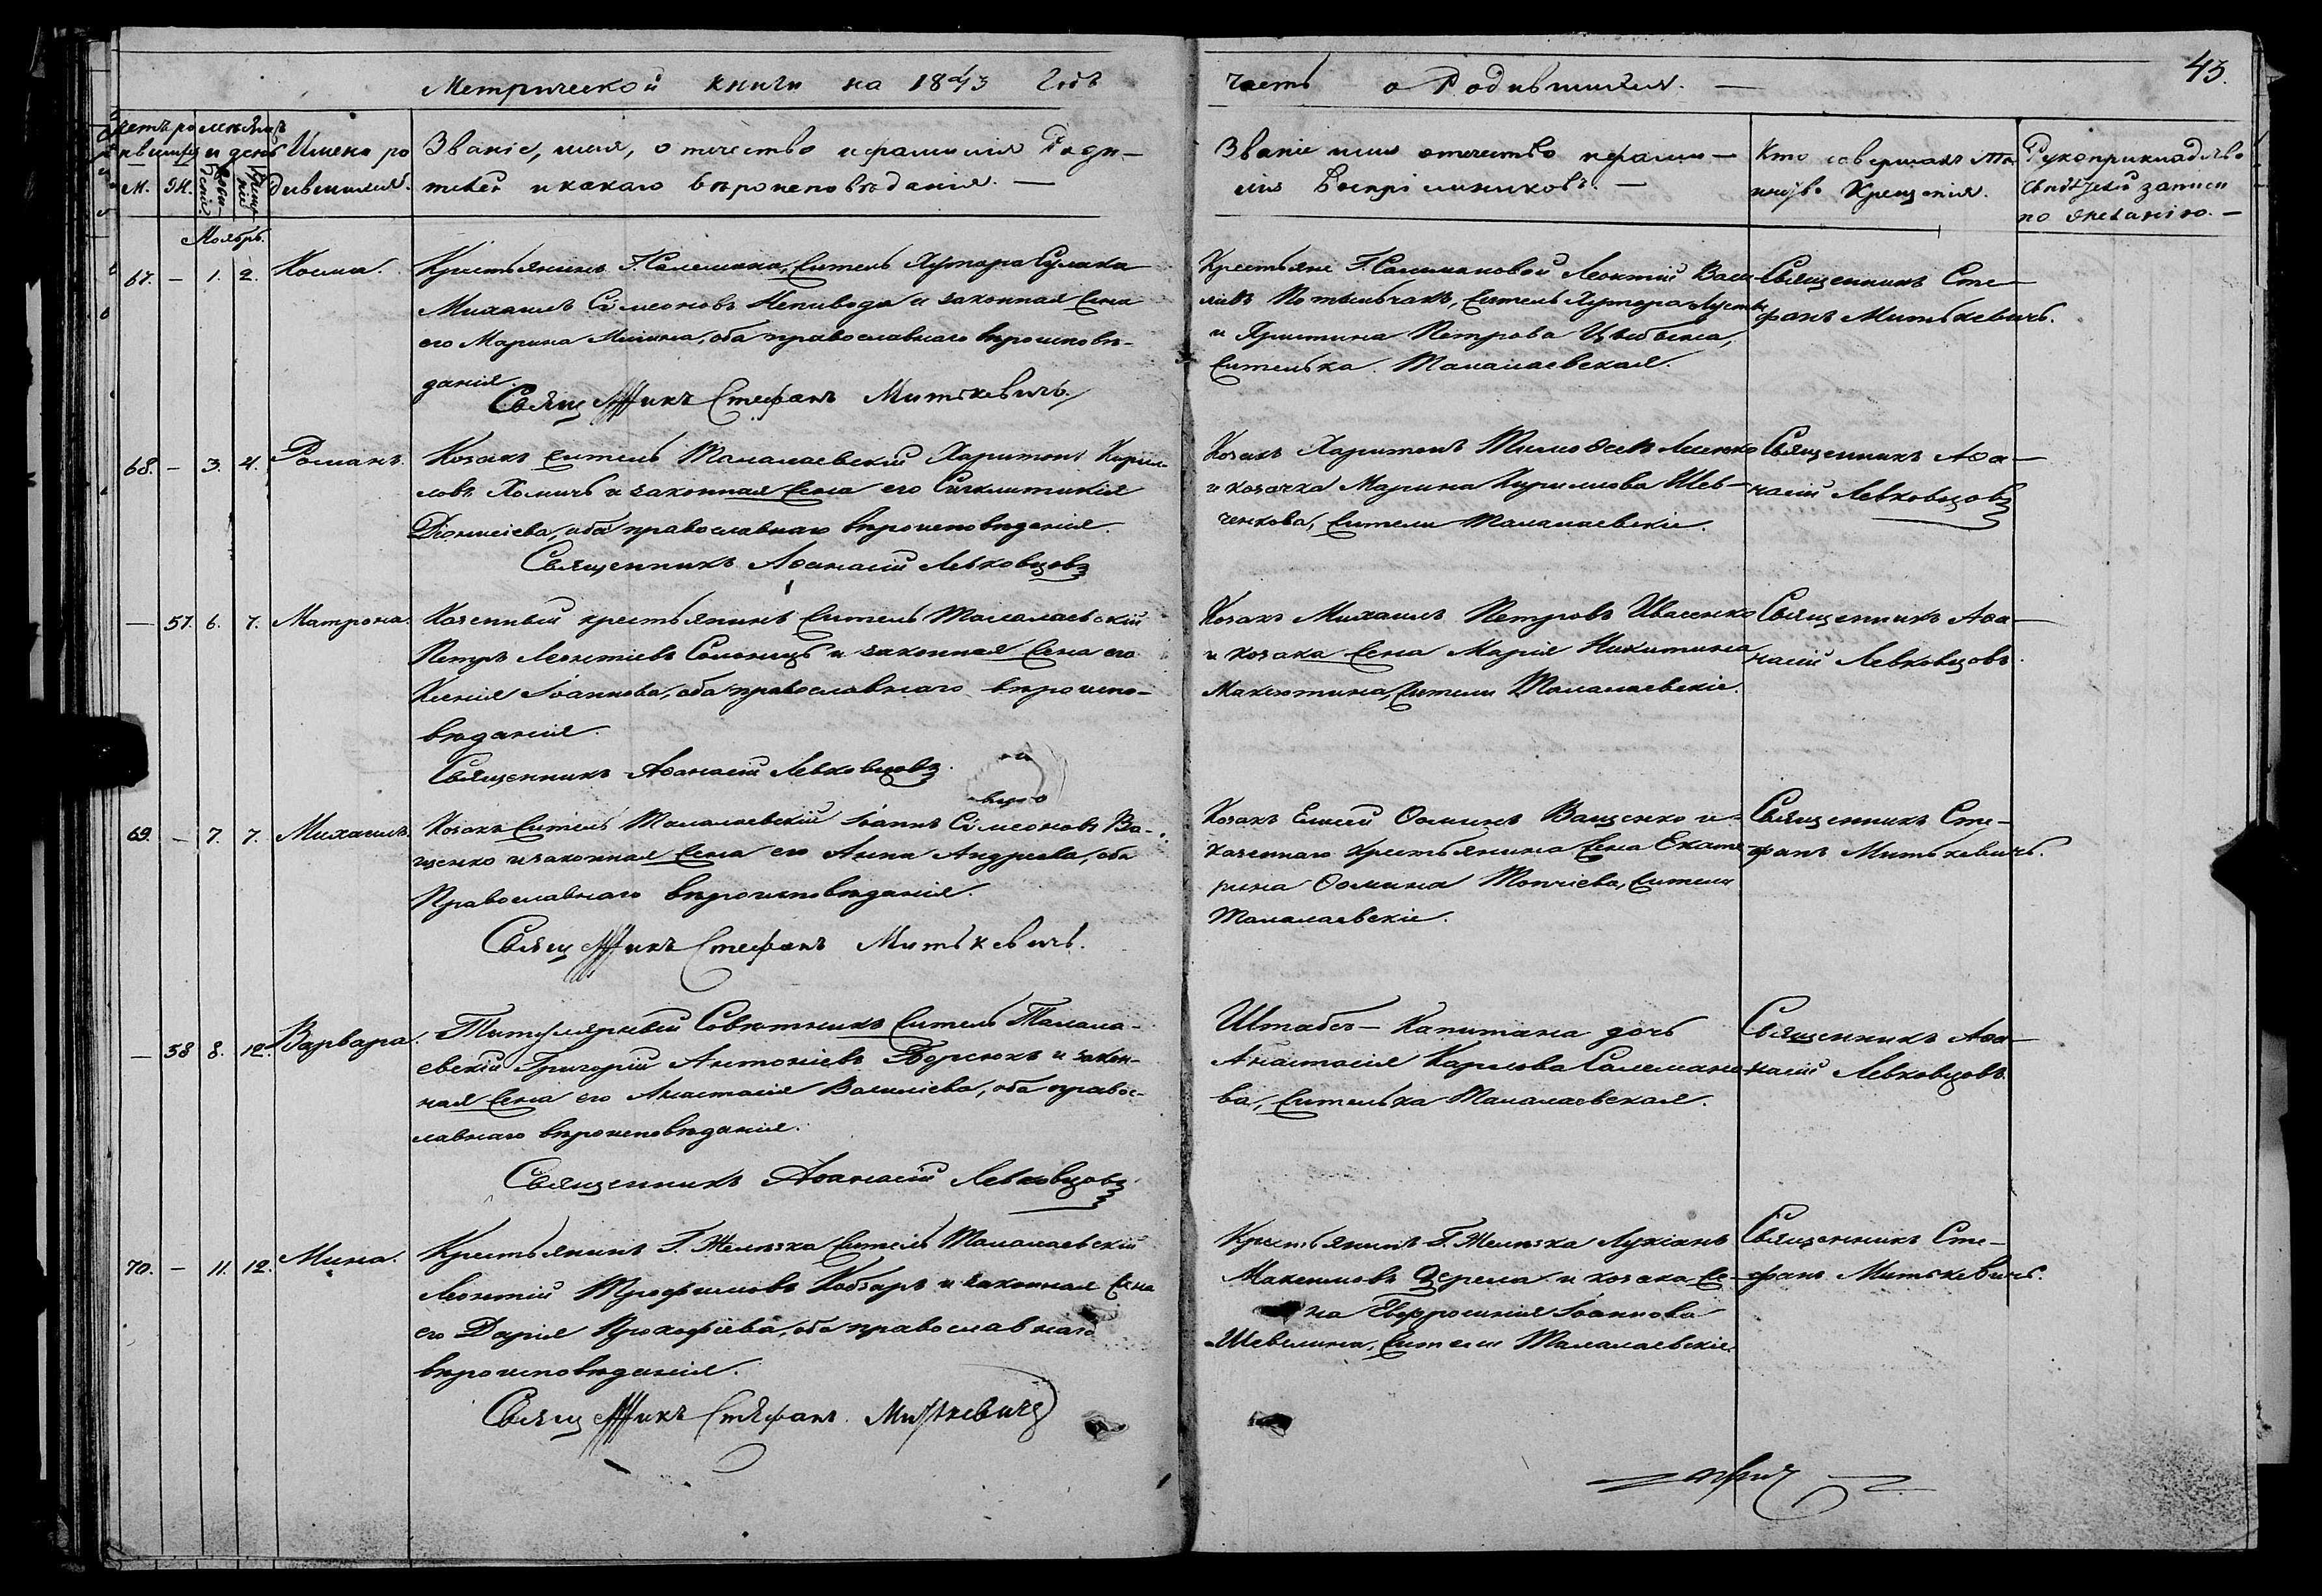 Метрической книги на 1843 Годъ
часть о Родившихся. —
43.
м. ж. Имена ро
дившихся.
Званіе, имя, отчество и фамилія Роди-
телей и какого вѣроисповѣданія. —
Званіе имя отчество и фами-
лія Воспріемниковъ. —
Кто совершалъ Та-
инство Крещенія.
Рукоприкладство
свидѣтелей записи
по желанію. —
Ноябрь.
67. — 1. 2. Косма.
Крестьянинъ Г. Селемана, житель Хутора
Михаилъ Сѵмеоновъ Непивода и законная жена
его Марина, оба православнаго вѣроисповѣ-
данія.
Священникъ Стефанъ Митькевичъ.
Крестьяне Г. Селимановой Леонтій Васи-
ліевъ, житель Хутора
и Христина Петрова,
жителька Талалаевская.
Священникъ Сте-
фанъ Митькевичъ.
68. — 3. 4. Романъ.
Козакъ житель Талалаевскій Харитонъ Кирил-
ловъ Хомичъ и законная жена его Сигклитикія
Діонисіева, оба православнаго вѣроисповѣданія.
Священникъ Аѳанасій Левковцовъ
Козакъ Харитонъ Тимоѳеевъ
и козачка Марина Кириллова Шев-
ченкова, жители Талалаевскіе.
Священникъ Аѳа-
насій Левковцовъ
— 57. 6. 7. Матрона.
Казенный крестьянинъ житель Талалаевскій
Петръ Леонтіевъ Солонецъ и законная жена его
Ксенія Іоаннова, оба православнаго вѣроиспо-
вѣданія.
Священникъ Аѳанасій Левковцовъ.
Козакъ Михаилъ Петровъ Ивасенко
и козака жена Марія Никитина
Максютина, жители Талалаевскіе.
Священникъ Аѳа-
насій Левковцовъ.
69. — 7. 7. Михаилъ.
Козакъ житель Талалаевскій Іоаннъ Сѵмеоновъ Ва-
щенко и законная жена его Анна Андреева, оба
Православнаго вѣроисповѣданія.
Священникъ Стефанъ Митькевичъ.
Козакъ Елисей Ѳоминъ Ващенко и
казеннаго крестьянина жена Екате-
рина Ѳомина Топчіева, жители
Талалаевскіе.
Священникъ Сте-
фанъ Митькевичъ.
— 58 8. 12. Варвара.
Титулярный Совѣтникъ житель Талала-
евскій Григорій Антоніевъ и закон-
ная жена его Анастасія Василіева, оба правос-
лавнаго вѣроисповѣданія.
Священникъ Аѳанасій Левковцовъ
Штабсъ-Капитана дочь
Анастасія Карлова Селемано-
ва, жителька Талалаевская.
Священникъ Аѳа-
насій Левковцовъ.
70. — 11. 12. Мина.
Крестьянинъ Г. Желѣзка житель Талалаевскій
Леонтій Трофимовъ Кобзарь и законная жена
его Дарія Прокофіева, оба православнаго
вѣроисповѣданія.
Священникъ Стефанъ Митькевичъ
Крестьянинъ Г. Желѣзка Лукіанъ
Максимовъ и козака же-
на Евфросинія Іоаннова
Шевелина, жители Талалаевскіе.
Священникъ Сте-
фанъ Митькевичъ.